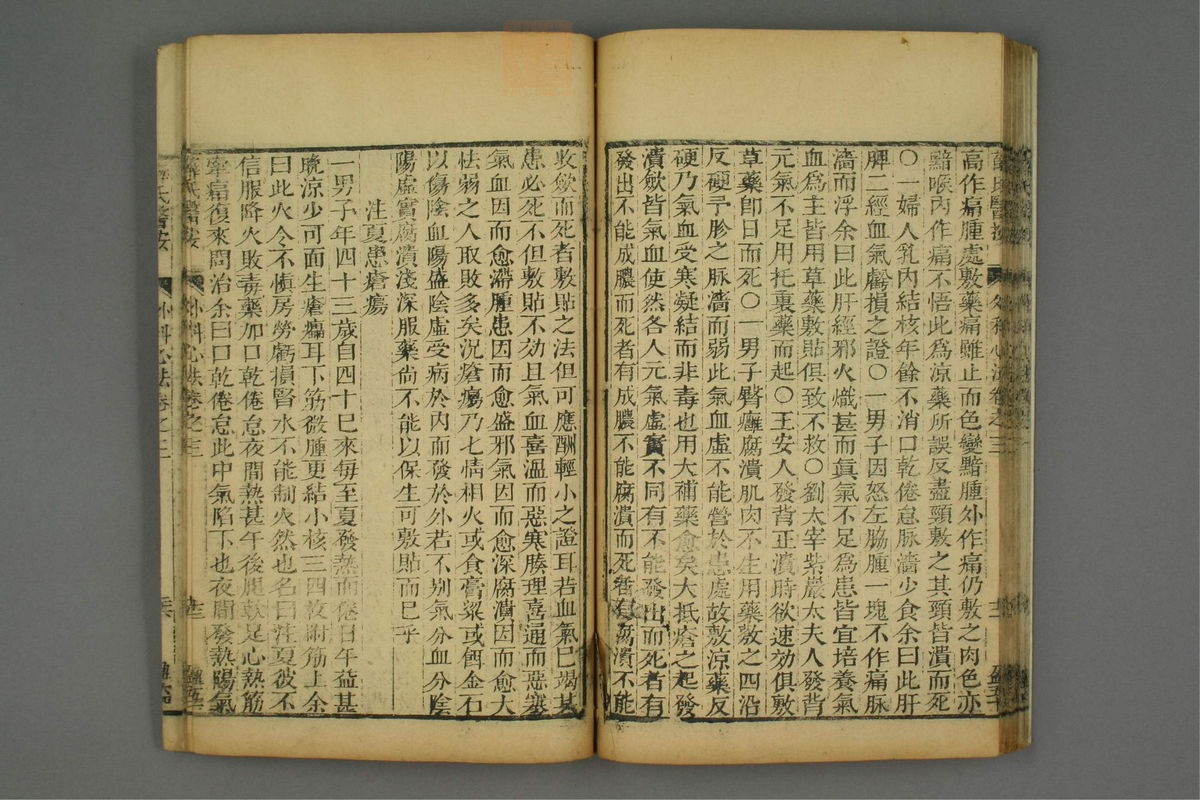 薛氏醫按 外科心法卷之三 十二
高作痛腫處敷藥痛雖止而色變黯腫外作痛仍敷之肉色亦
黯喉內作痛不悟此為涼藥所誤反盡頸敷之其頸皆潰而死
〇一婦人乳內結核年餘不消口乾倦怠脉濇少食余曰此肝
脾二經血氣虧損之證〇一男子因怒左脇腫一塊不作痛脉
濇而浮余曰此肝經邪火熾甚而眞氣不足為患皆宜培養氣
血爲主皆用草藥敷貼俱致不救〇劉太宰紫巖太夫人發背
元氣不足用托裏藥而起〇王安人發背正潰時欲速効俱敷
草藥卽日而死〇一男子臀癰腐潰肌肉不生用藥敷之四沿
反硬予胗之脉濇而弱此氣血虛不能營於患處故敷涼藥反
硬乃氣血受寒凝結而非毒也用大補藥愈矣大抵瘡之起發
潰斂皆氣血使然各人元氣虛實不同有不能發出而死者有
發出不能成膿而死者有成膿不能腐潰而死者有腐潰不能
收斂而死者敷貼之法但可應酬輕小之證耳若血氣已竭其
患必死不但敷貼不効且氣血喜溫而惡寒腠理喜通而惡塞
氣血因而愈滯腫患因而愈盛邪氣因而愈深腐潰因而愈大
怯弱之人取敗多矣況瘡瘍乃七情相火或食膏粱或餌金石
以傷陰血陽盛陰虛受病於內而發於外若不別氣分血分陰
陽虛實腐潰淺深服藥尚不能以保生可敷貼而已乎
注夏患瘡瘍
一男子年四十三歲自四十巳來每至夏發熱而倦日午益甚
晩涼少可面生瘡癟耳下筋微腫更結小核三四枚附筋上余
曰此火令不愼房勞虧損腎水不能制火然也名曰注夏彼不
信服降火敗毒藥加口乾倦怠夜間熱甚午後腿軟足心熱筋
牽痛復來問治余曰口乾倦怠此中氣陷下也夜間發熱陽氣
薛氏醫按 外科心法卷之三 十三